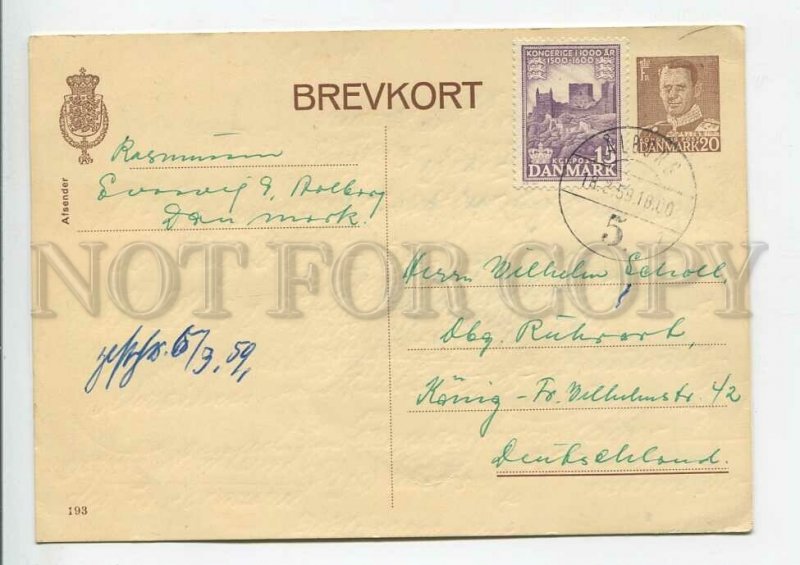 BREVKORT
Afsender
Rasmussen
Aalborg
Danmark.
KONGERIGE I 1000 ÅR
1500-1600
KGL POST 15
DANMARK
DANMARK 20
5
NOT FOR COPY
Herrn Wilhelm Scholl,
Dbg. Ruhrort,
König-Fr. Wilhelmstr. 42
Deutschland.
5/3. 59,
193